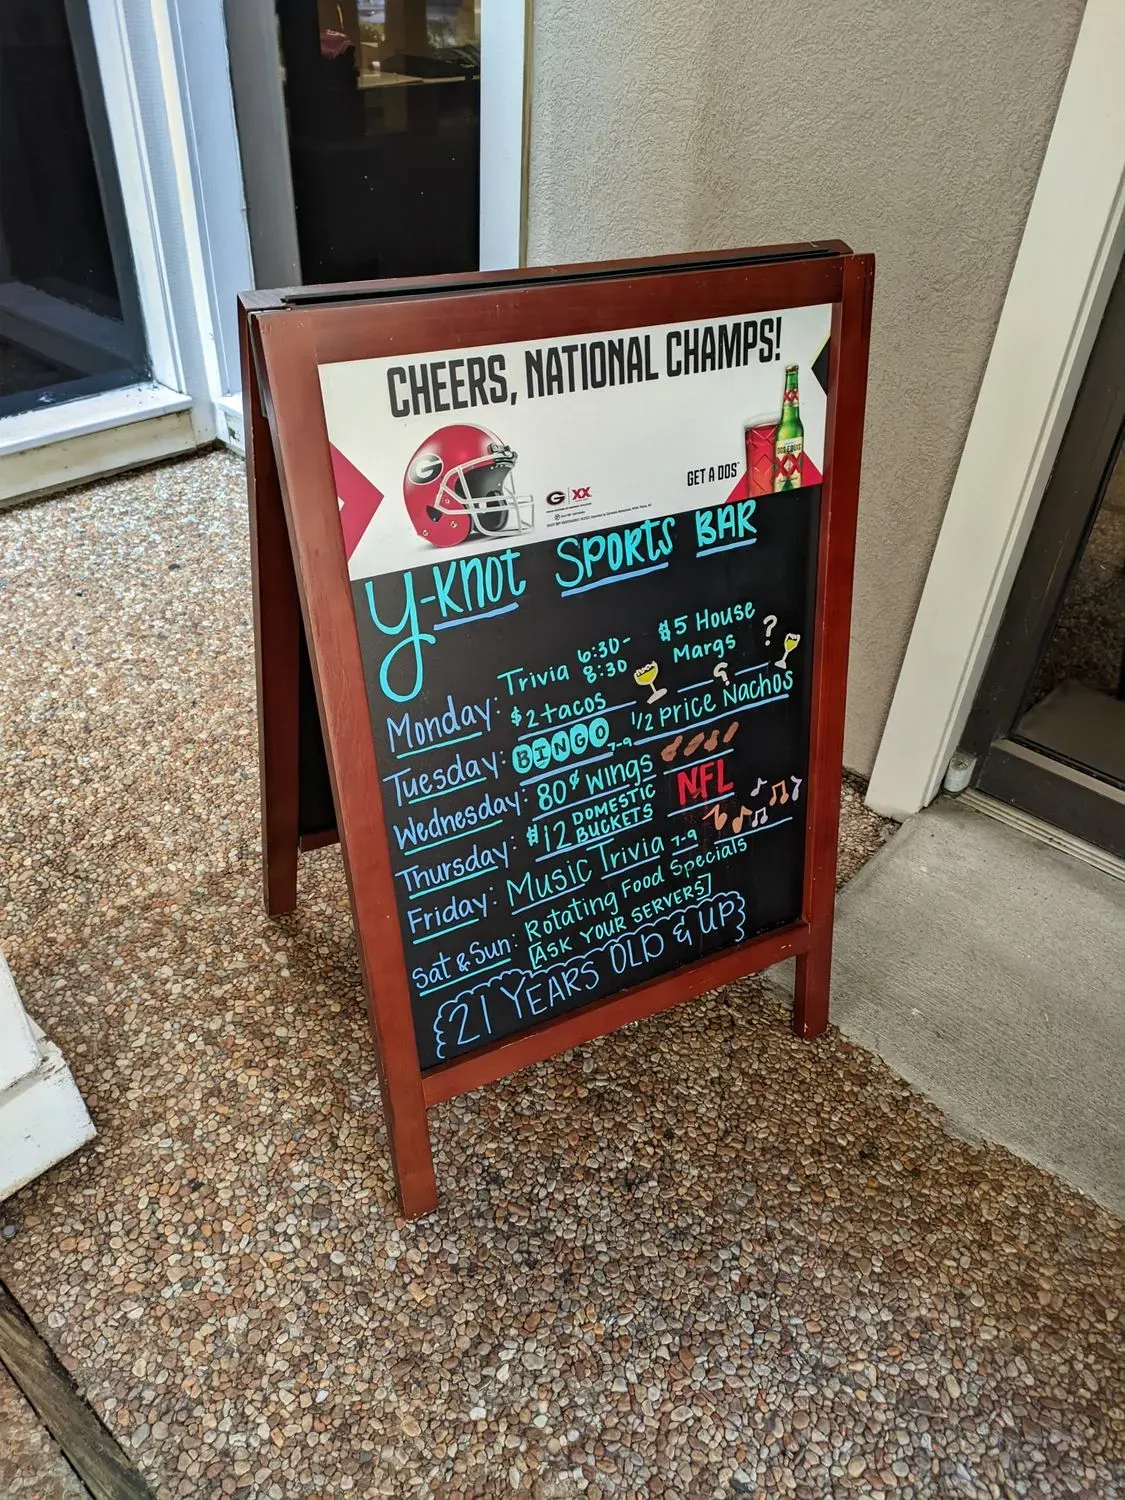 CHEERS, NATIONAL CHAMPS!
G
GET A DOS
DOS EQUIS
XX
G | XX
Y-KNOT SPORTS BAR
Monday: Trivia 6:30-8:30 $5 House Margs ?
Tuesday: $2 tacos ?
Wednesday: BINGO 7-9 1/2 price Nachos
Thursday: 80¢ wings
$12 DOMESTIC BUCKETS NFL
Friday: Music Trivia 7-9
Sat & Sun: Rotating Food Specials
[ASK YOUR SERVERS]
21 YEARS OLD & UP